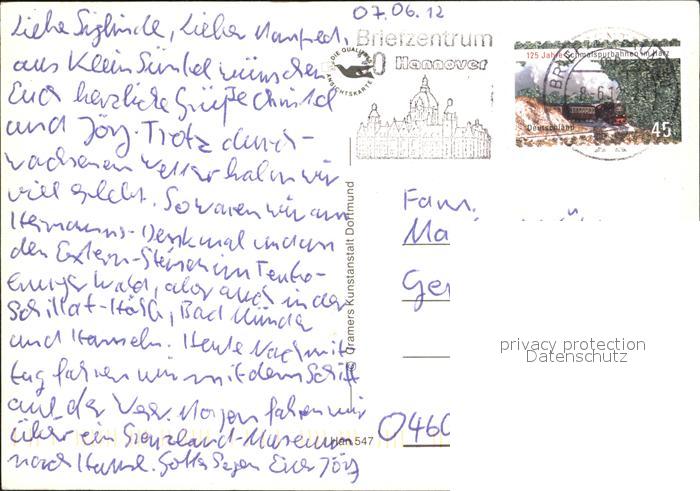 07.06.12
Liebe Sieglinde, Lieber Manfred,
aus Klein Süntel wünschen
Euch herzliche Grüße Christel
und Jörg. Trotz durch-
wachsenem Wetter haben wir
viel erlebt. So waren wir am
Hermanns-Denkmal und an
den Extern-Steinen im Teuto-
burger Wald, aber auch in der
Schillat-Höhle, Bad Münder
und Hameln. Heute Nachmit
tag fahren wir mit dem Schiff
auf der Weser. Morgen fahren wir
über ein Grenzland-Museum
nach Hause. Gottes Segen Euer Jörg
DIE QUALITÄTS
ANSICHTSKARTE
Briefzentrum
30 Hannover
125 Jahre Schmalspurbahnen im Harz
Deutschland
45
BRIE
-8.6.1
© Cramers Kunstanstalt Dortmund
Han 547
Fam.
Ma
Ge
0460
privacy protection
Datenschutz